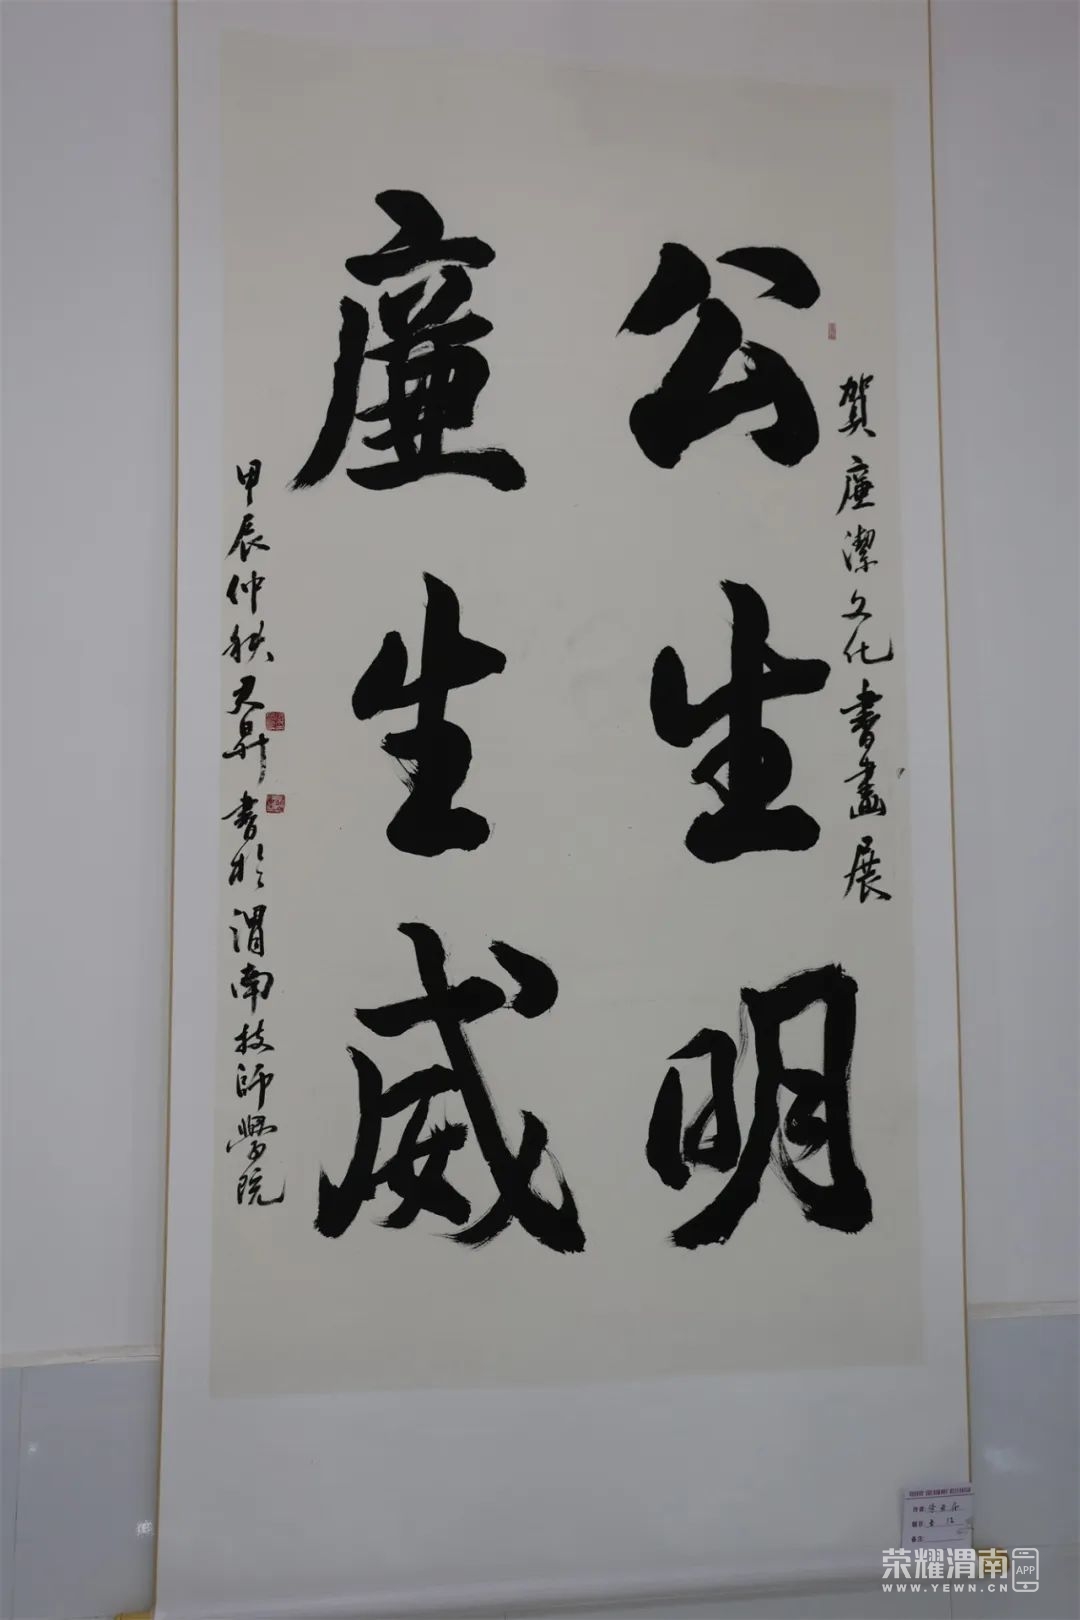 賀廉潔文化書畫展
公生明
廉生威
甲辰仲秋天昇書於渭南技師學院
作者:
题目: 书法
备注:
荣耀渭南
APP
WWW.YEWN.CN